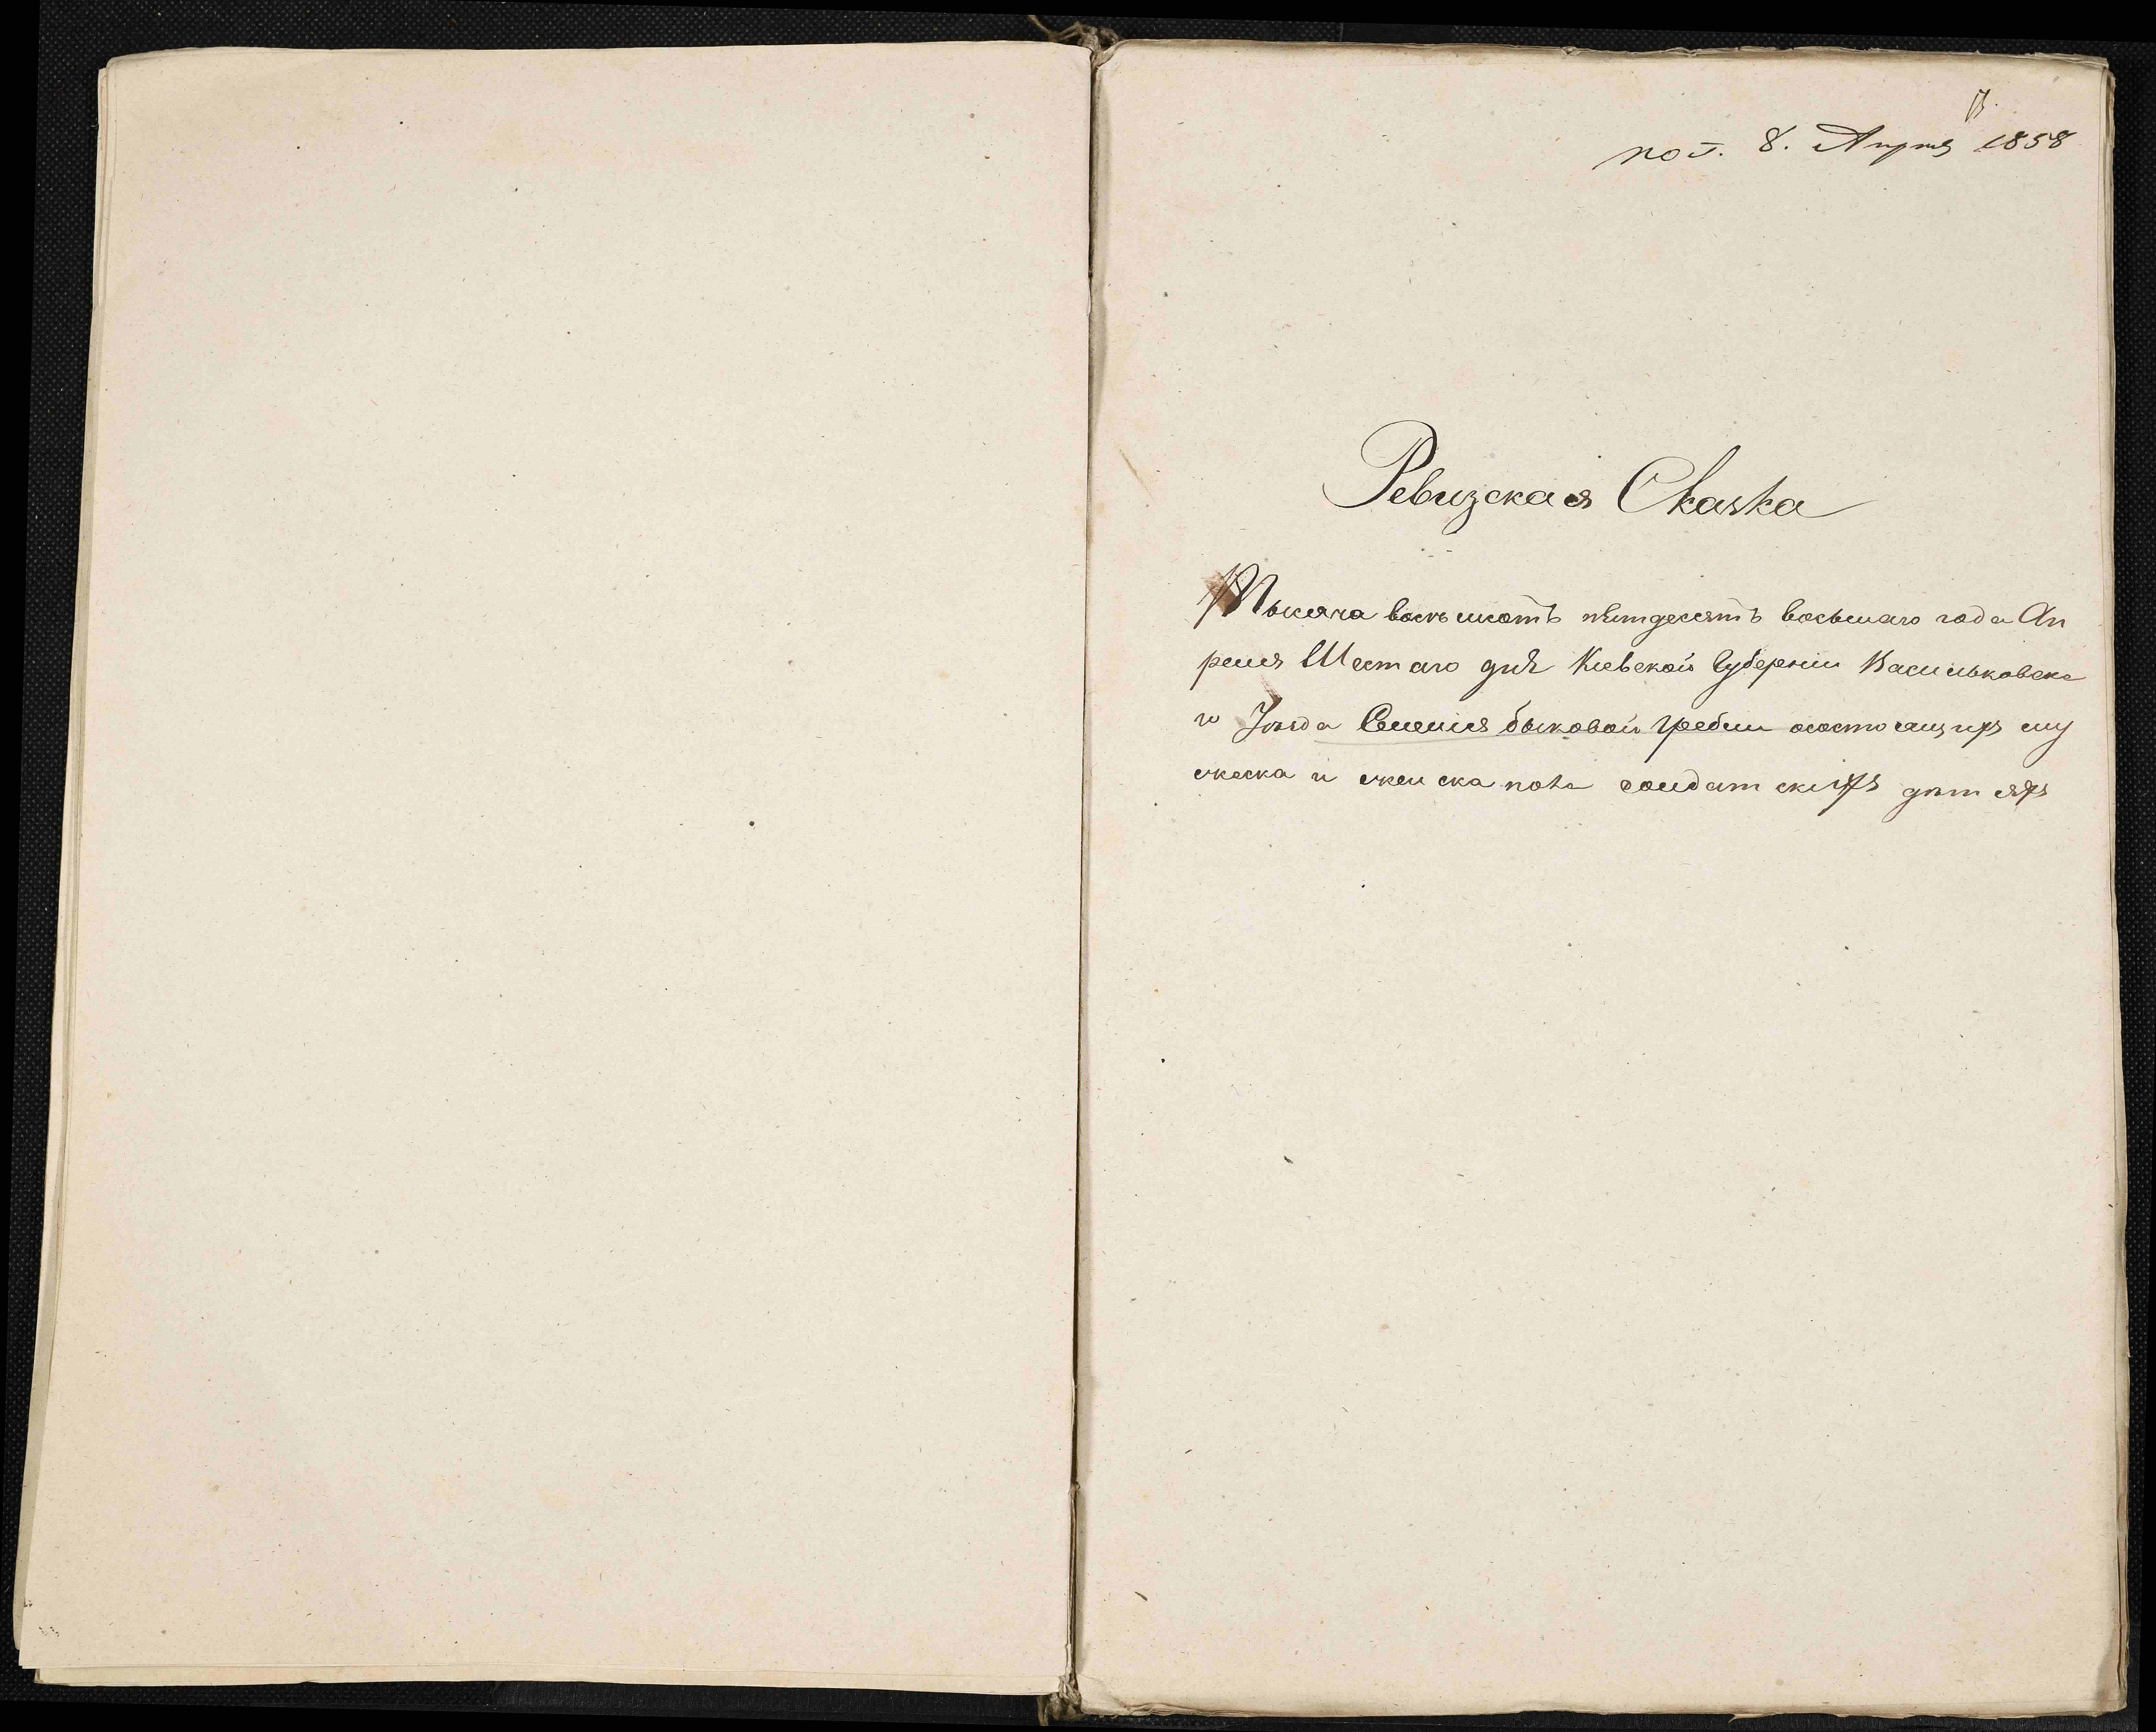 пол. 8. Апреля 1858
Ревизская Сказка
Тысяча восемьсотъ пятдесятъ восьмаго года Ап
реля Шестаго дня Кіевской Губерніи Васильковска
го Уезда Селенія Быковой Гребли о состоящихъ му
жеска и женска пола солдатскихъ детяхъ